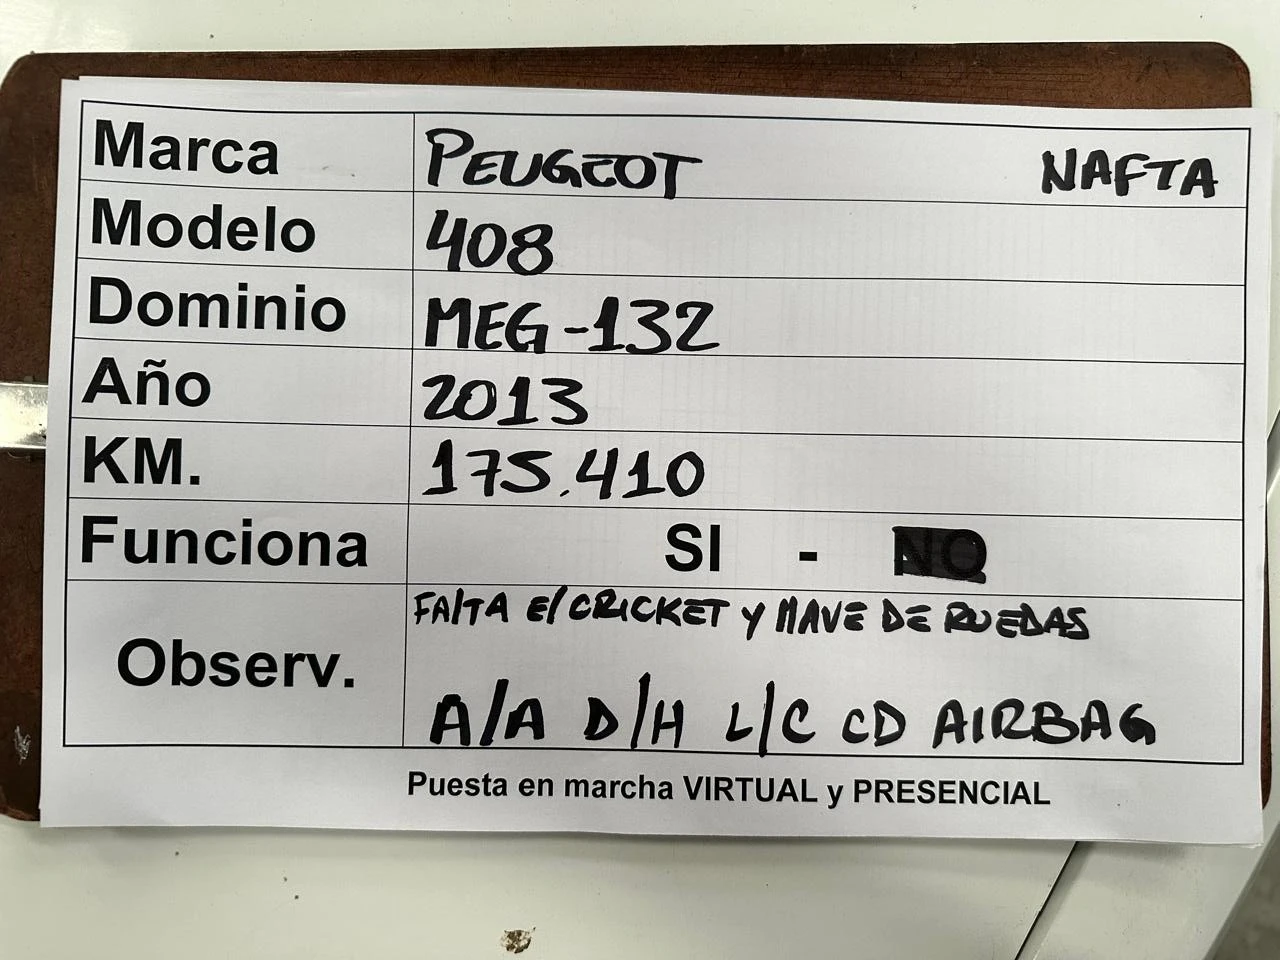 Marca PEUGEOT NAFTA
Modelo 408
Dominio MEG-132
Año 2013
KM. 175.410
Funciona SI - NO
Observ. FALTA EL CRICKET Y LLAVE DE RUEDAS
A/A D/H L/C CD AIRBAG
Puesta en marcha VIRTUAL y PRESENCIAL